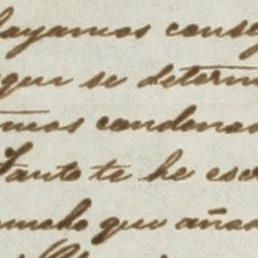 ayamos conse
que se determ
mos condena
Tanto te he esc
mucho que añad